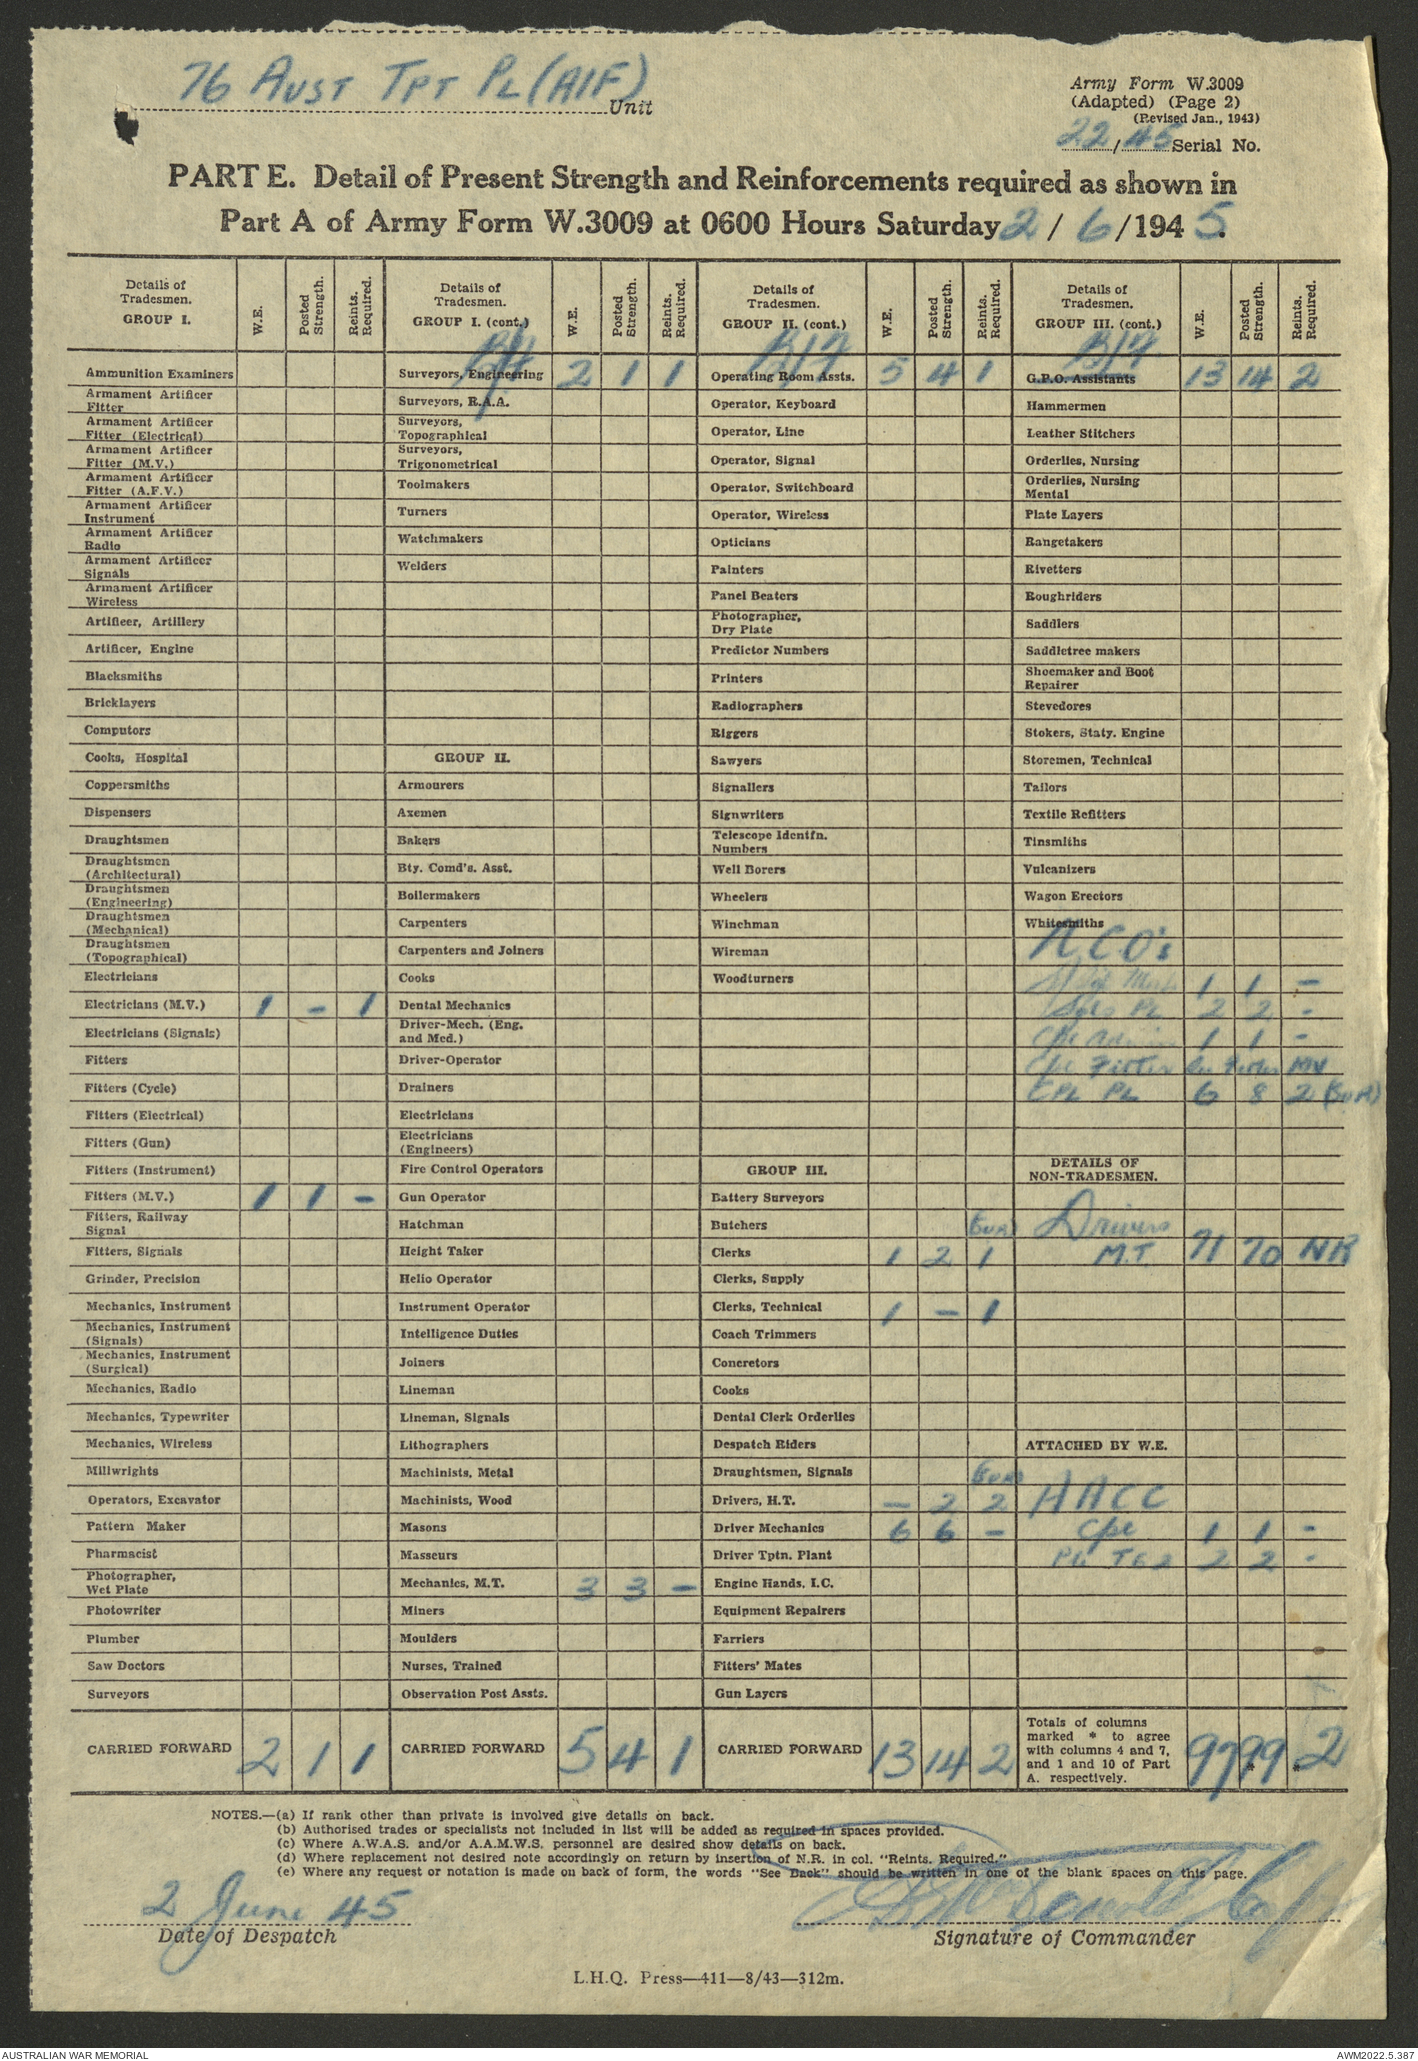 76 AUST TPT PL (AIF) Unit
Army Form W.3009
(Adapted) (Page 2)
(Revised Jan., 1943)
22/45 Serial No.
PART E. Detail of Present Strength and Reinforcements required as shown in
Part A of Army Form W.3009 at 0600 Hours Saturday 2 / 6 /1945.
Details of Tradesmen. GROUP I. W.E. Posted Strength. Reints. Required.
Ammunition Examiners
Armament Artificer Fitter
Armament Artificer Fitter (Electrical)
Armament Artificer Fitter (M.V.)
Armament Artificer Fitter (A.F.V.)
Armament Artificer Instrument
Armament Artificer Radio
Armament Artificer Signals
Armament Artificer Wireless
Artificer, Artillery
Artificer, Engine
Blacksmiths
Bricklayers
Computors
Cooks, Hospital
Coppersmiths
Dispensers
Draughtsmen
Draughtsmen (Architectural)
Draughtsmen (Engineering)
Draughtsmen (Mechanical)
Draughtsmen (Topographical)
Electricians
Electricians (M.V.) 1 - 1
Electricians (Signals)
Fitters
Fitters (Cycle)
Fitters (Electrical)
Fitters (Gun)
Fitters (Instrument)
Fitters (M.V.) 1 1 -
Fitters, Railway Signal
Fitters, Signals
Grinder, Precision
Mechanics, Instrument
Mechanics, Instrument (Signals)
Mechanics, Instrument (Surgical)
Mechanics, Radio
Mechanics, Typewriter
Mechanics, Wireless
Millwrights
Operators, Excavator
Pattern Maker
Pharmacist
Photographer, Wet Plate
Photowriter
Plumber
Saw Doctors
Surveyors
CARRIED FORWARD 2 1 1
Details of Tradesmen. GROUP I. (cont.) W.E. Posted Strength. Reints. Required.
B/f
Surveyors, Engineering 2 1 1
Surveyors, R.A.A.
Surveyors, Topographical
Surveyors, Trigonometrical
Toolmakers
Turners
Watchmakers
Welders
GROUP II.
Armourers
Axemen
Bakers
Bty. Comd's. Asst.
Boilermakers
Carpenters
Carpenters and Joiners
Cooks
Dental Mechanics
Driver-Mech. (Eng. and Med.)
Driver-Operator
Drainers
Electricians
Electricians (Engineers)
Fire Control Operators
Gun Operator
Hatchman
Height Taker
Helio Operator
Instrument Operator
Intelligence Duties
Joiners
Lineman
Lineman, Signals
Lithographers
Machinists, Metal
Machinists, Wood
Masons
Masseurs
Mechanics, M.T. 3 3 -
Miners
Moulders
Nurses, Trained
Observation Post Assts.
CARRIED FORWARD 5 4 1
Details of Tradesmen. GROUP II. (cont.) W.E. Posted Strength. Reints. Required.
B/f
Operating Room Assts. 5 4 1
Operator, Keyboard
Operator, Line
Operator, Signal
Operator, Switchboard
Operator, Wireless
Opticians
Painters
Panel Beaters
Photographer, Dry Plate
Predictor Numbers
Printers
Radiographers
Riggers
Sawyers
Signallers
Signwriters
Telescope Identfn. Numbers
Well Borers
Wheelers
Winchman
Wireman
Woodturners
GROUP III.
Battery Surveyors
Butchers
Clerks 1 2 1
Clerks, Supply
Clerks, Technical 1 - 1
Coach Trimmers
Concretors
Cooks
Dental Clerk Orderlies
Despatch Riders
Draughtsmen, Signals
Drivers, H.T. - 2 2
Driver Mechanics 6 6 -
Driver Tptn. Plant
Engine Hands, I.C.
Equipment Repairers
Farriers
Fitters' Mates
Gun Layers
CARRIED FORWARD 13 14 2
Details of Tradesmen. GROUP III. (cont.) W.E. Posted Strength. Reints. Required.
B/f
G.P.O. Assistants 13 14 2
Hammermen
Leather Stitchers
Orderlies, Nursing
Orderlies, Nursing Mental
Plate Layers
Rangetakers
Rivetters
Roughriders
Saddlers
Saddletree makers
Shoemaker and Boot Repairer
Stevedores
Stokers, Staty. Engine
Storemen, Technical
Tailors
Textile Refitters
Tinsmiths
Vulcanizers
Wagon Erectors
Whitesmiths
NCO's
1 1 -
Sgts PL 2 2 -
Cpl Admin 1 1 -
Cpl Fitter MV
CPL PL 6 8 2 (SUR)
DETAILS OF NON-TRADESMEN.
Drivers
M.T. 71 70 NR
ATTACHED BY W.E.
AACC
Cpl 1 1 -
2 2 -
Totals of columns marked * to agree with columns 4 and 7, and 1 and 10 of Part A. respectively. 97 99 2
NOTES.—(a) If rank other than private is involved give details on back.
(b) Authorised trades or specialists not included in list will be added as required in spaces provided.
(c) Where A.W.A.S. and/or A.A.M.W.S. personnel are desired show details on back.
(d) Where replacement not desired note accordingly on return by insertion of N.R. in col. "Reints. Required."
(e) Where any request or notation is made on back of form, the words "See Back" should be written in one of the blank spaces on this page.
2 June 45
Date of Despatch
Signature of Commander
L.H.Q. Press—411—8/43—312m.
AUSTRALIAN WAR MEMORIAL
AWM2022.5.387